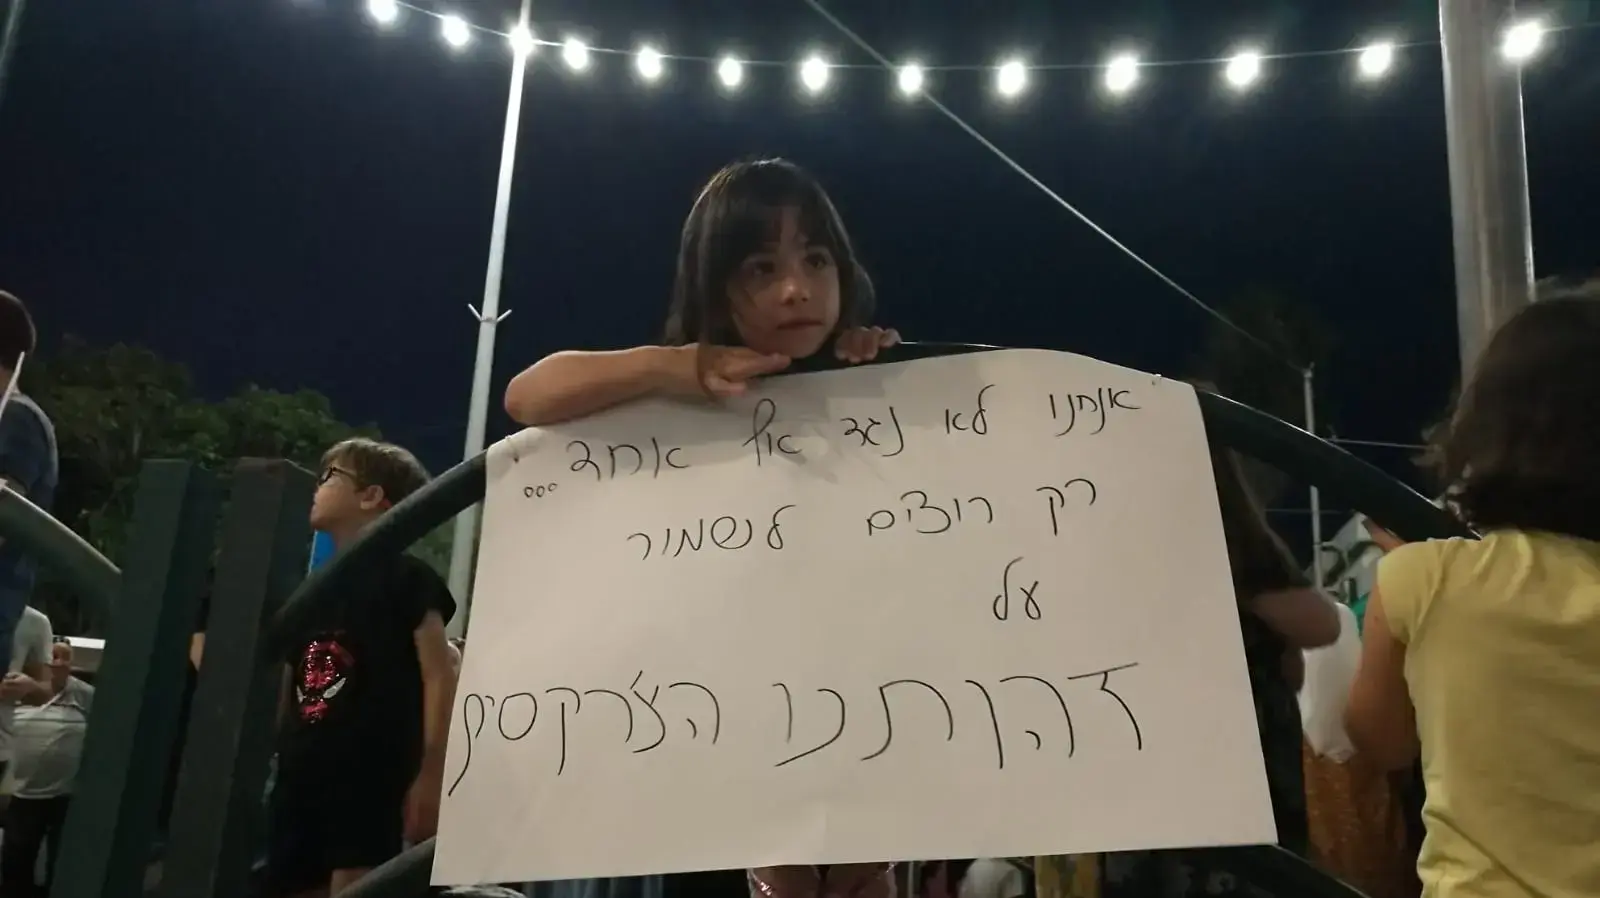 אנחנו לא נגד אף אחד...
רק רוצים לשמור
על
זהותנו הצ'רקסית